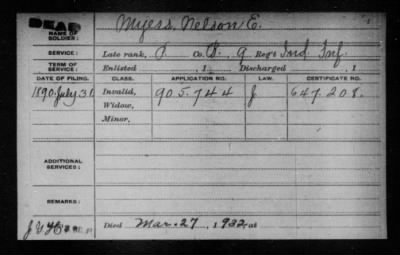 DEAD
NAME OF SOLDIER: Myers, Nelson E.
SERVICE: Late rank, P Co. D, 9 Reg't Ind Inf.
TERM OF SERVICE: Enlisted , 1 Discharged , 1
DATE OF FILING. CLASS. APPLICATION NO. LAW. CERTIFICATE NO.
1890 July 31 Invalid, 905.744 J 647.208.
Widow,
Minor,
ADDITIONAL SERVICES:
REMARKS:
Died Mar. 27, 1932, at